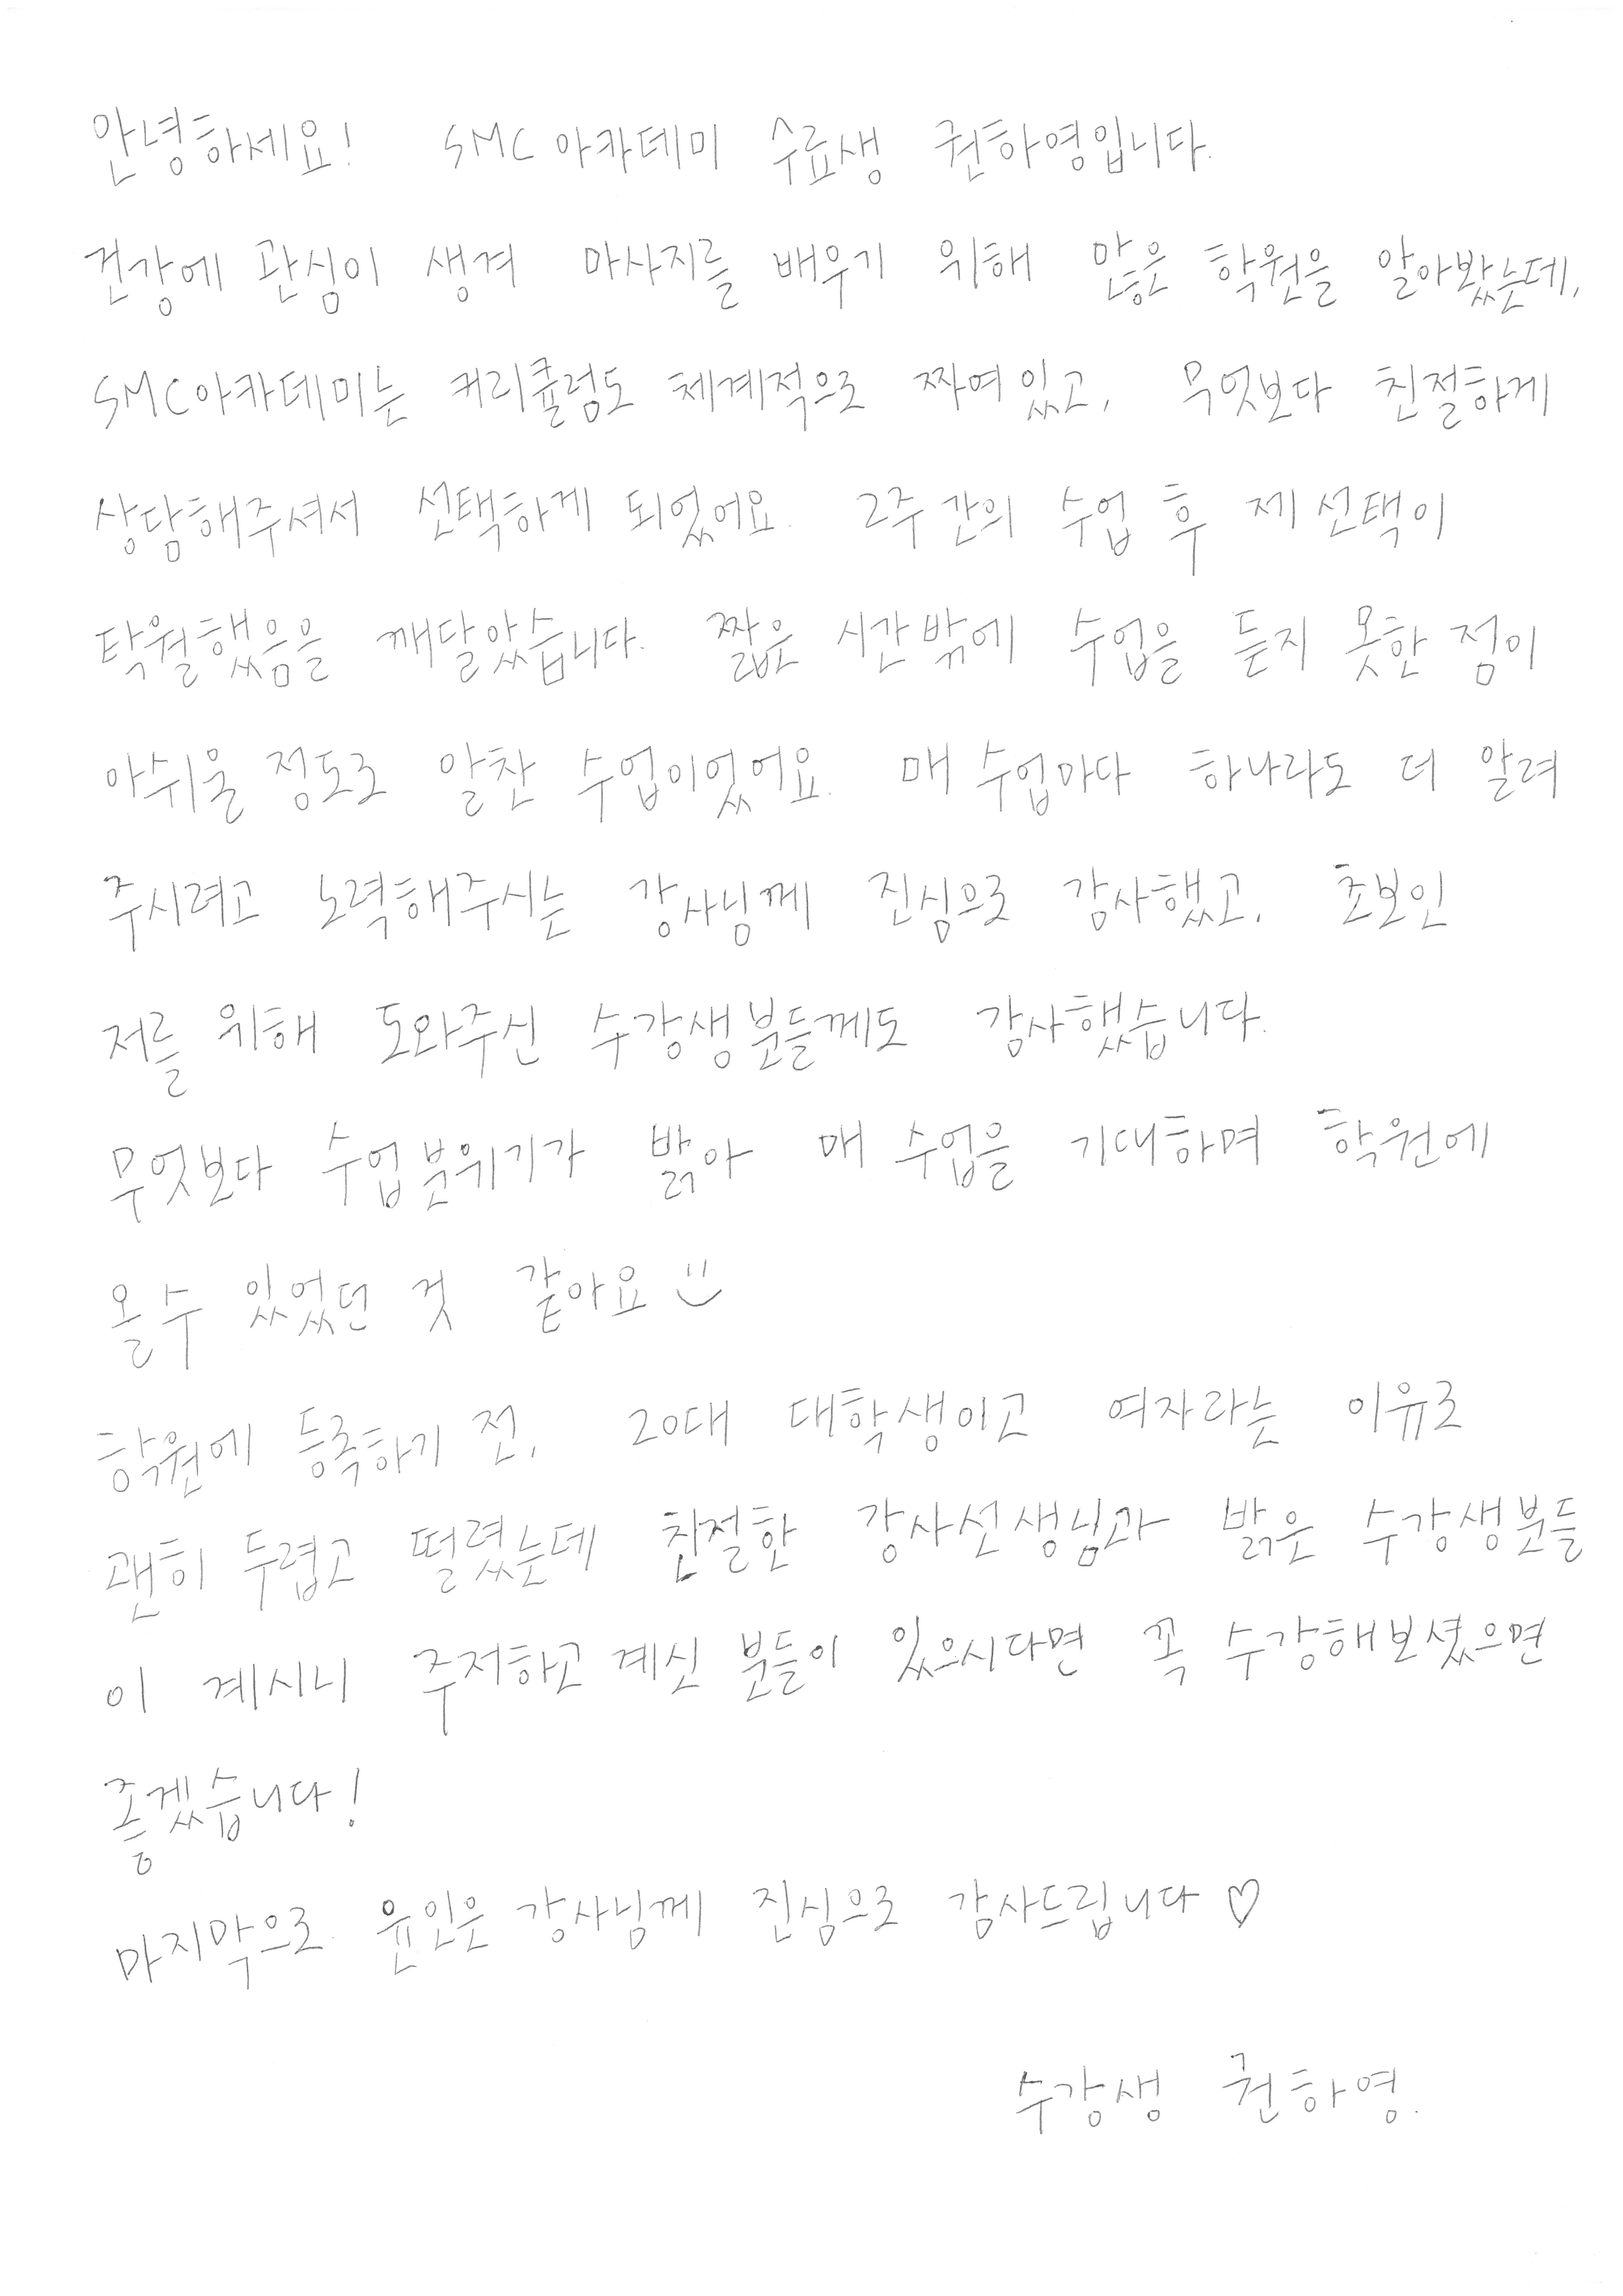 안녕하세요! SMC 아카데미 수료생 권하영입니다.
건강에 관심이 생겨 마사지를 배우기 위해 많은 학원을 알아봤는데,
SMC아카데미는 커리큘럼도 체계적으로 짜여있고, 무엇보다 친절하게
상담해주셔서 선택하게 되었어요. 2주 간의 수업 후 제 선택이
탁월했음을 깨달았습니다. 짧은 시간밖에 수업을 듣지 못한 점이
아쉬울 정도로 알찬 수업이었어요. 매 수업마다 하나라도 더 알려
주시려고 노력해주시는 강사님께 진심으로 감사했고, 초보인
저를 위해 도와주신 수강생분들께도 감사했습니다.
무엇보다 수업분위기가 밝아 매 수업을 기대하며 학원에
올 수 있었던 것 같아요
학원에 등록하기 전, 20대 대학생이고 여자라는 이유로
괜히 두렵고 떨렸는데 친절한 강사선생님과 밝은 수강생분들
이 계시니 주저하고 계신 분들이 있으시다면 꼭 수강해보셨으면
좋겠습니다!
마지막으로 윤인은 강사님께 진심으로 감사드립니다 ♡
수강생 권하영.